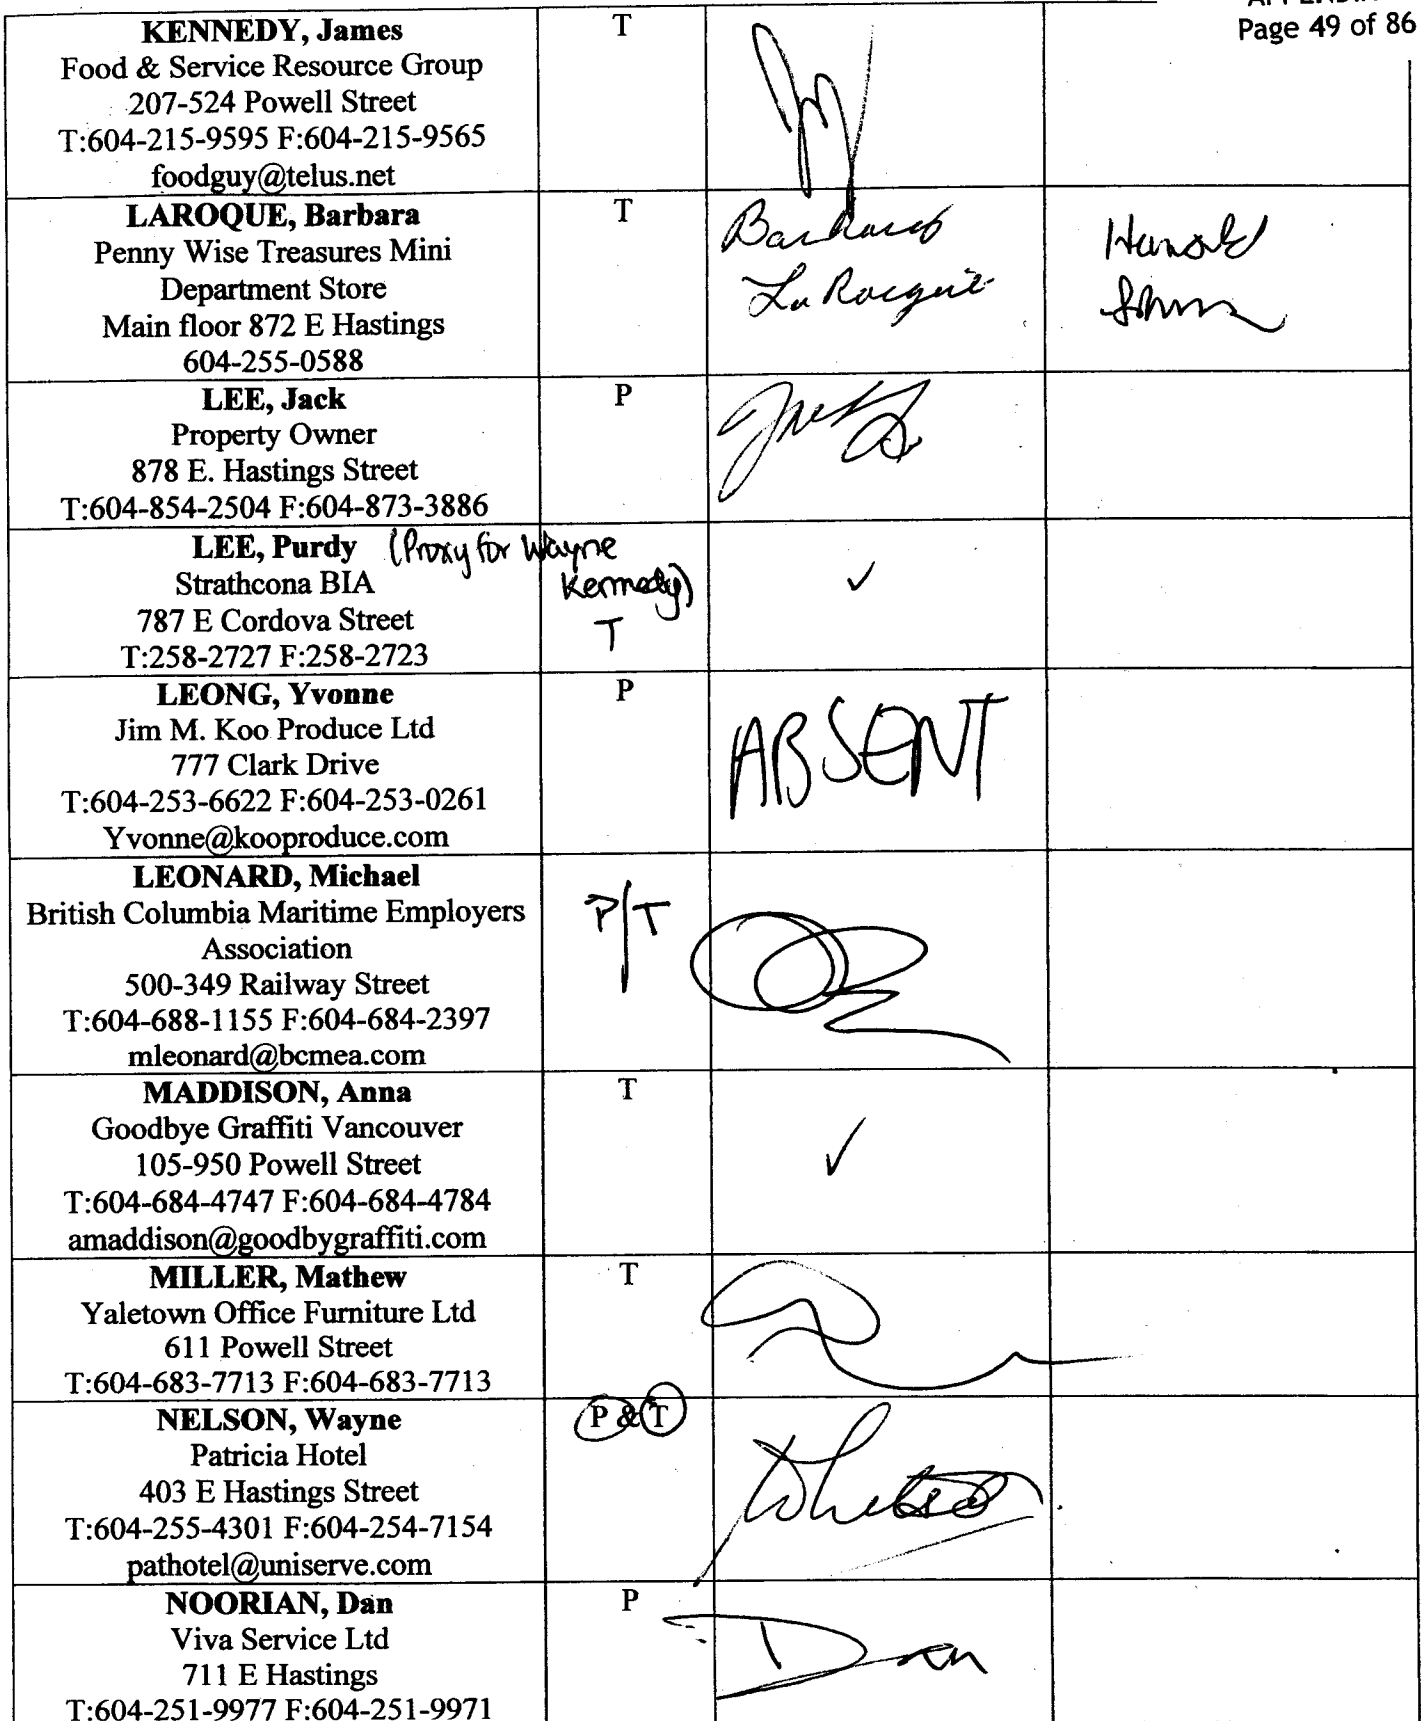 Page 49 of 86
KENNEDY, James
Food & Service Resource Group
207-524 Powell Street
T:604-215-9595 F:604-215-9565
foodguy@telus.net
T
LAROQUE, Barbara
Penny Wise Treasures Mini
Department Store
Main floor 872 E Hastings
604-255-0588
T
Barbara
LaRocque
Harold
LEE, Jack
Property Owner
878 E. Hastings Street
T:604-854-2504 F:604-873-3886
P
Jack
LEE, Purdy (Proxy for Wayne
Kennedy)
Strathcona BIA
787 E Cordova Street
T:258-2727 F:258-2723
T
✓
LEONG, Yvonne
Jim M. Koo Produce Ltd
777 Clark Drive
T:604-253-6622 F:604-253-0261
Yvonne@kooproduce.com
P
ABSENT
LEONARD, Michael
British Columbia Maritime Employers
Association
500-349 Railway Street
T:604-688-1155 F:604-684-2397
mleonard@bcmea.com
P/T
MADDISON, Anna
Goodbye Graffiti Vancouver
105-950 Powell Street
T:604-684-4747 F:604-684-4784
amaddison@goodbygraffiti.com
T
✓
MILLER, Mathew
Yaletown Office Furniture Ltd
611 Powell Street
T:604-683-7713 F:604-683-7713
T
NELSON, Wayne
Patricia Hotel
403 E Hastings Street
T:604-255-4301 F:604-254-7154
pathotel@uniserve.com
P & T
NOORIAN, Dan
Viva Service Ltd
711 E Hastings
T:604-251-9977 F:604-251-9971
P
Dan